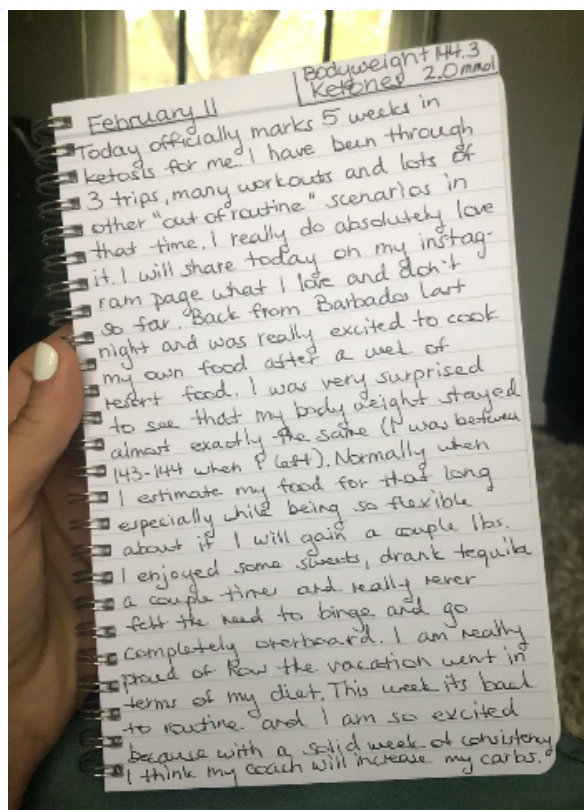 Bodyweight 144.3
Ketones 2.0 mmol
February 11
Today officially marks 5 weeks in
ketosis for me. I have been through
3 trips, many workouts and lots of
other "out of routine" scenarios in
that time. I really do absolutely love
it. I will share today on my instag-
ram page what I love and don't
so far. Back from Barbados last
night and was really excited to cook
my own food after a week of
resort food. I was very surprised
to see that my body weight stayed
almost exactly the same (I was between
143-144 when I left). Normally when
I estimate my food for that long
especially while being so flexible
about it I will gain a couple lbs.
I enjoyed some sweets, drank tequila
a couple times and really never
felt the need to binge and go
completely overboard. I am really
proud of how the vacation went in
terms of my diet. This week its back
to routine and I am so excited
because with a solid week of consistency
I think my coach will increase my carbs.